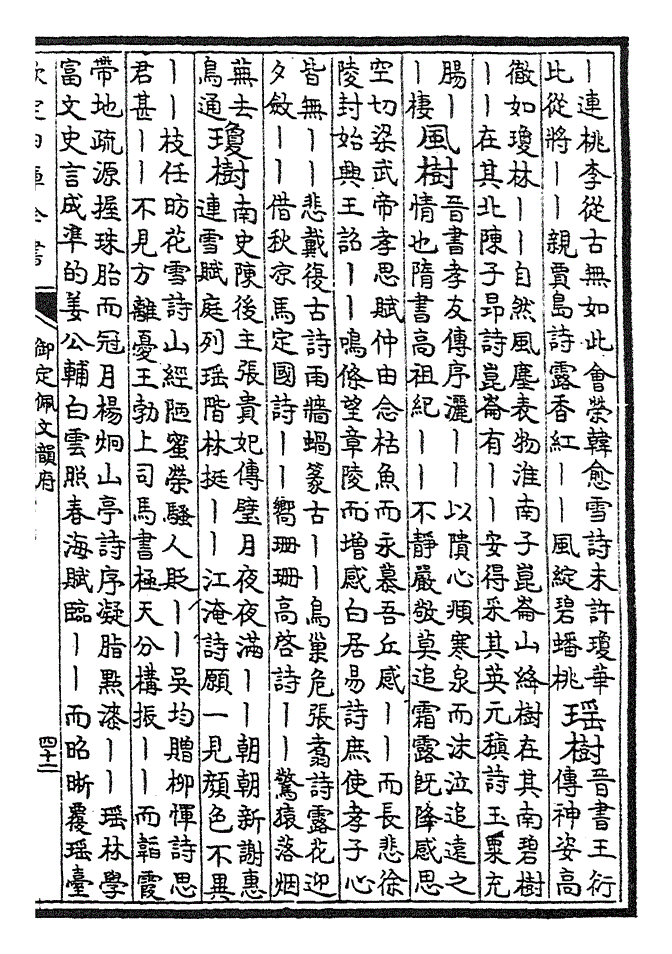 ｜連桃李從古無如此會榮韓愈雪詩未許瓊華
比從將｜｜親賈島詩露香紅｜｜風綻碧蟠桃
瑶樹
晉書王衍
傳神姿高
徹如瓊林｜｜自然風塵表物淮南子崑崙山絳樹在其南碧樹
｜｜在其北陳子昂詩崑崙有｜｜安得采其英元稹詩玉粟充
腸｜
｜棲
風樹
晉書孝友傳序灑｜｜以隤心頫寒泉而沬泣追遠之
情也隋書高祖紀｜｜不靜嚴敬莫追霜露旣降感思
空切梁武帝孝思賦仲由念枯魚而永慕吾丘感｜｜而長悲徐
陵封始興王詔｜｜鳴條望章陵而增感白居易詩庶使孝子心
皆無｜｜悲戴復古詩雨牆蝸篆古｜｜鳥巢危張翥詩露花迎
夕斂｜｜借秋凉馬定國詩｜｜嚮珊珊高啓詩｜｜驚猿落烟
蕪去
鳥通
瓊樹
南史陳後主張貴妃傳璧月夜夜滿｜｜朝朝新謝惠
連雪賦庭列瑶階林挺｜｜江淹詩願一見顔色不異
｜｜枝任昉花雪詩山經陋蜜榮騷人貶｜｜吳均贈柳惲詩思
君甚｜｜不見方離憂王勃上司馬書極天分構振｜｜而韜霞
帶地疏源握珠胎而冠月楊炯山亭詩序凝脂點漆｜｜瑶林學
富文史言成準的姜公輔白雲照春海賦臨｜｜而昭晰覆瑶臺
欽定四庫全書
御定佩文韻府
四十二